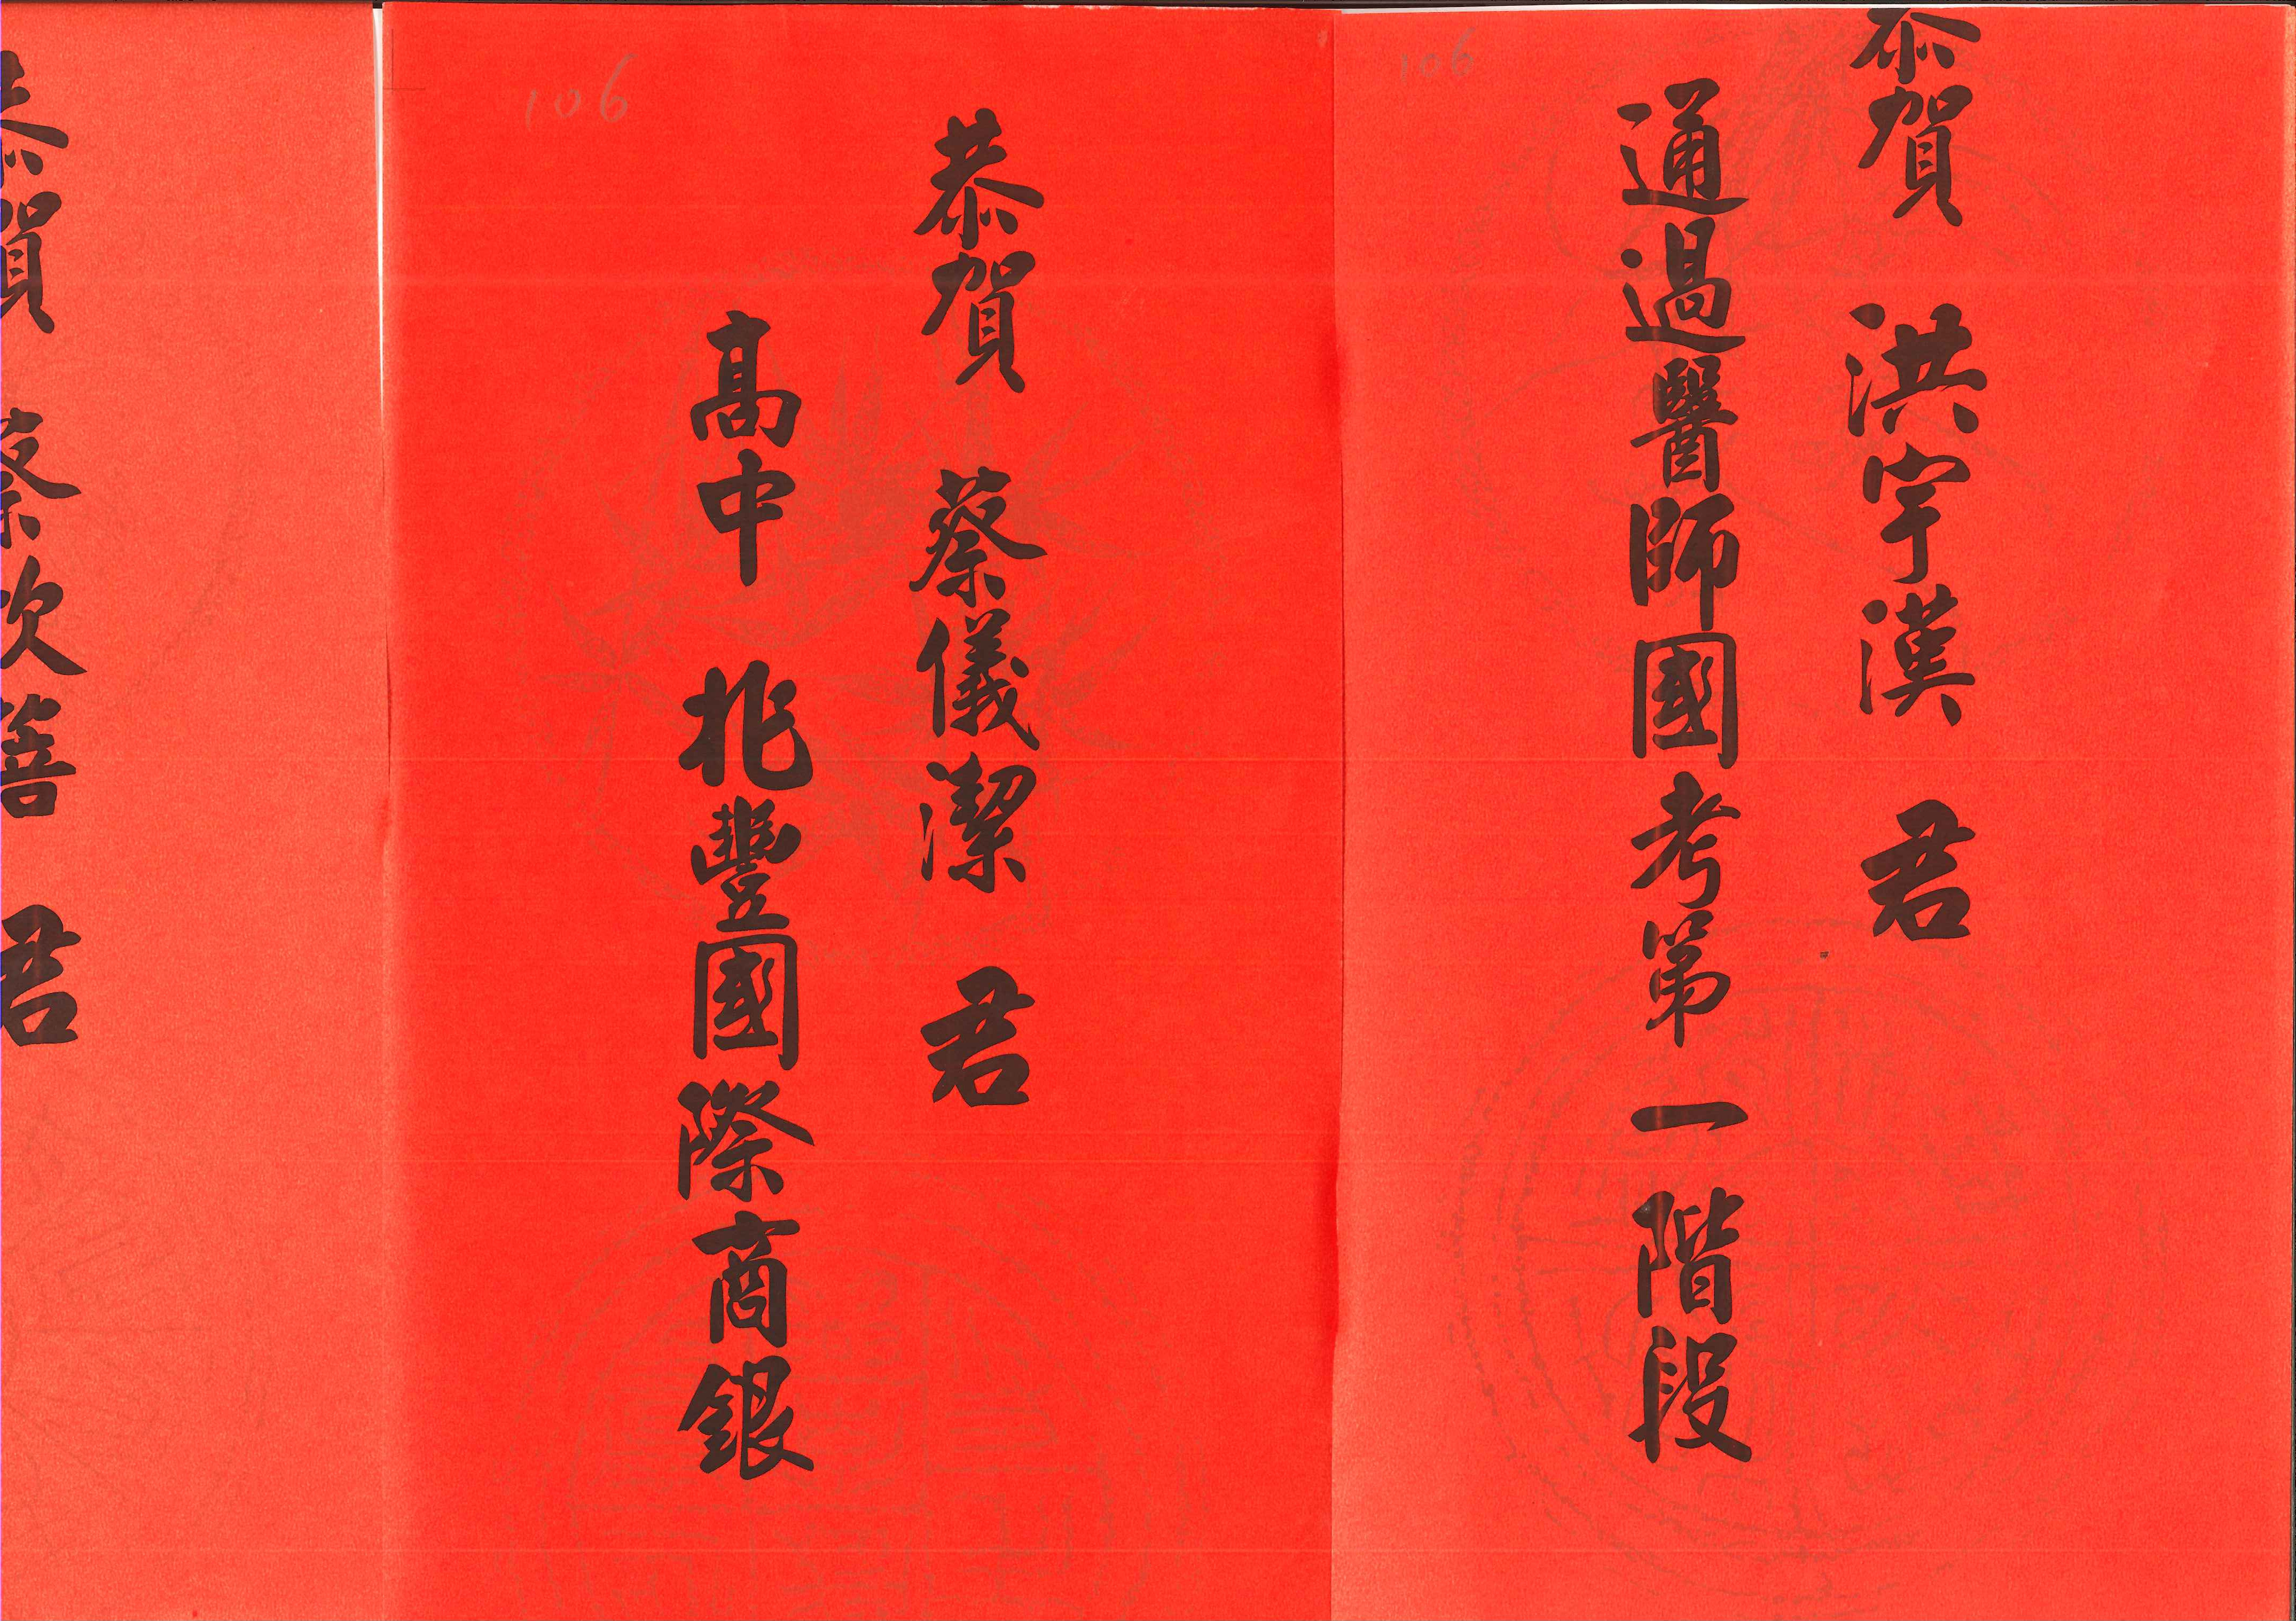 106
恭賀 洪宇漢 君
通過醫師國考第一階段
106
恭賀 蔡儀潔 君
高中 兆豐國際商銀
恭賀 蔡欣蓉 君